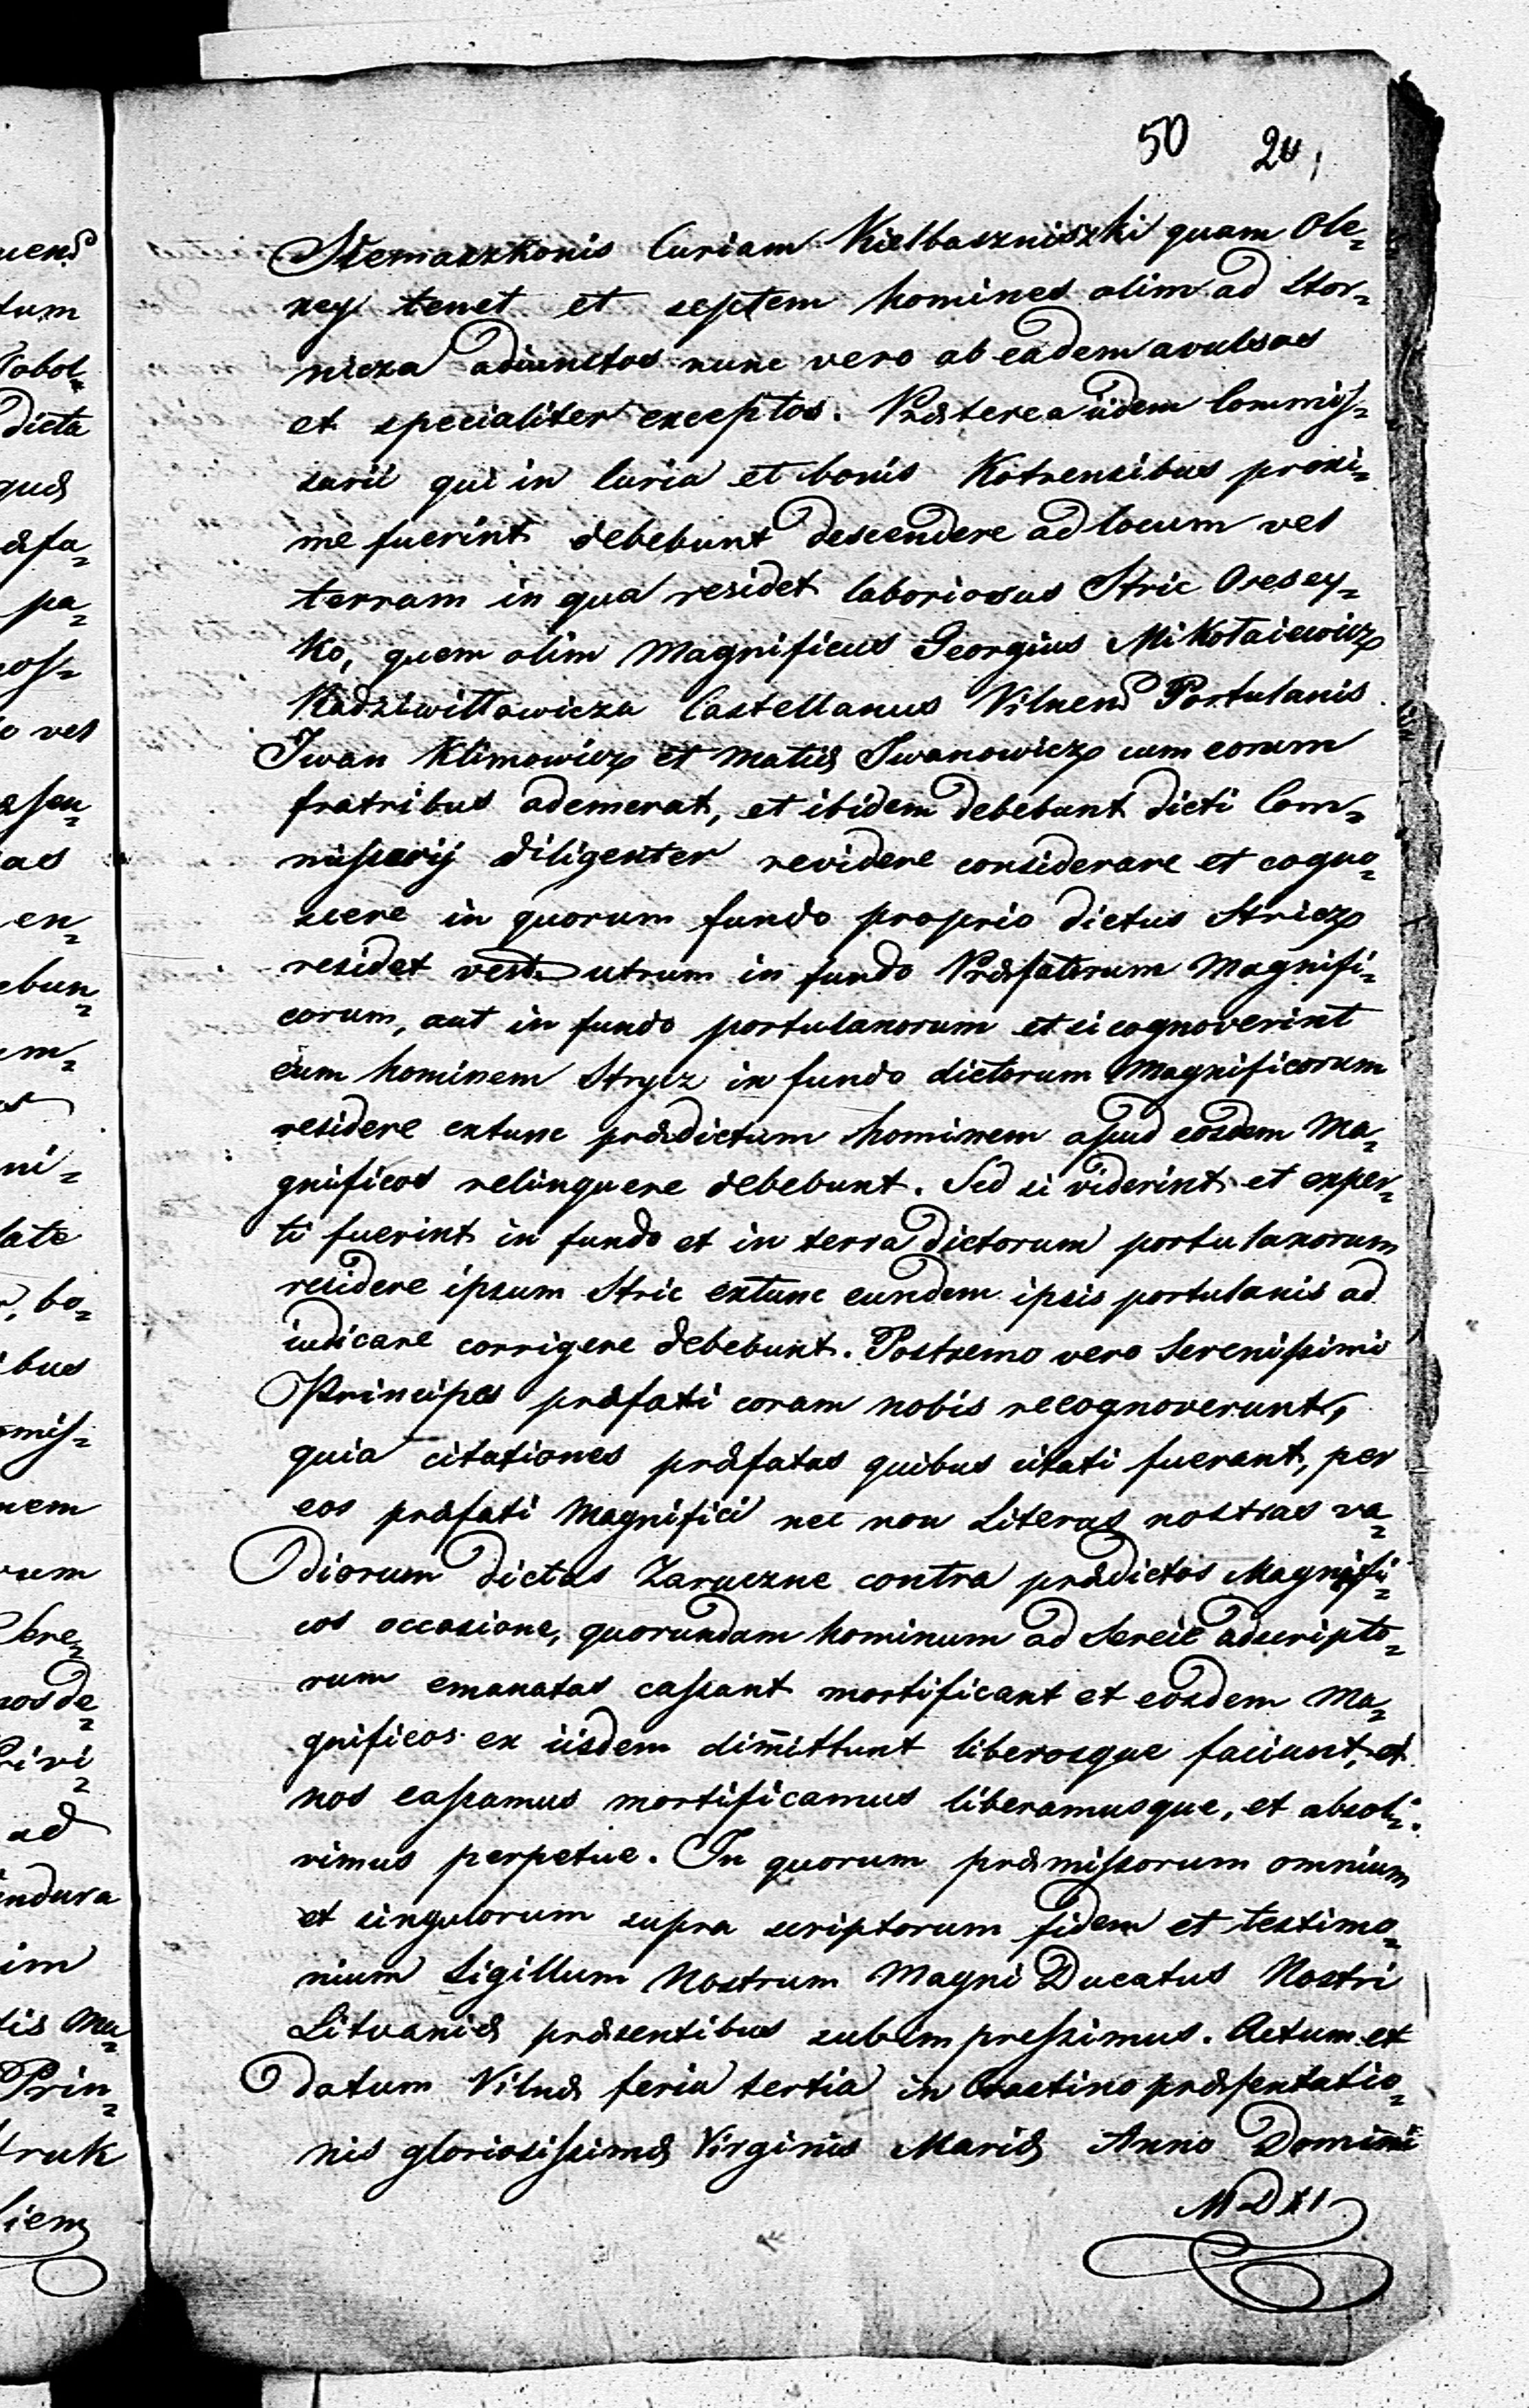 50 20,
Stemaxkonis Curiam Kielbaszniszki quam Ole¬
xey tenet et septem homines olim ad Stor¬
nicza adiunctos nunc vero ab eadem avulsos
et specialiter exceptos. Præterea iidem Commis¬
sarii qui in Curia et bonis Kotrensibus proxi¬
me fuerint debebunt descendere ad locum vel
terram in qua residet laboriosus Stric Oresey¬
ko, quem olim Magnificus Georgius Mikołaiewicz
Radziwiłłowicza Castellanus Vilnens Portulanis
Iwan Klimowicz et Matiæ Iwanowicz cum eorum
fratribus ademerat, et ibidem debebunt dicti Com¬
missarij diligenter revidere considerare et cogno¬
scere in quorum fundo proprio dictus Stricz
residet utrum in fundo Præfatorum Magnifi¬
corum, aut in fundo portulanorum et si cognoverint
eum hominem Strycz in fundo dictorum Magnificorum
residere extunc prædictum hominem apud eosdem Ma¬
gnificos relinquere debebunt. Sed si viderint et exper¬
ti fuerint in fundo et in terra dictorum portulanorum
residere ipsum Stric extunc eundem ipsis portulanis ad
iudicare corrigere debebunt. Postremo vero Serenissimi
Principes præfati coram nobis recognoverunt,
quia citationes præfatas quibus citati fuerant, per
eos præfati Magnifici nec non Literas nostras va¬
diorum dictas Zaruczne contra prædictos Magnifi¬
cos occasione, quorundam hominum ad Sereie adscripto¬
rum emanatas cassant mortificant et eosdem Ma¬
gnificos ex iisdem dimittunt liberosque faciunt, et
nos cassamus mortificamus liberamusque, et absol¬
vimus perpetue. In quorum præmissorum omnium
et singulorum supra scriptorum fidem et testimo¬
nium Sigillum Nostrum Magni Ducatus Nostri
Litvaniæ præsentibus subimpressimus. Actum et
datum Vilnæ feria tertia in Crastino præsentatio¬
nis gloriosissimæ Virginis Mariæ Anno Domini
MDXI